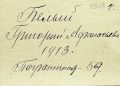 Белый
Григорий Афанасьевич
1913.
Пограничная - 69.